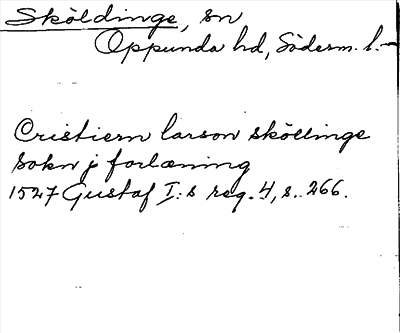 Sköldinge, sn
Oppunda hd, Söderm. l.
Cristiern larson sköllinge
sokn j forlæning
1527 Gustaf I:s reg. 4, s. 266.